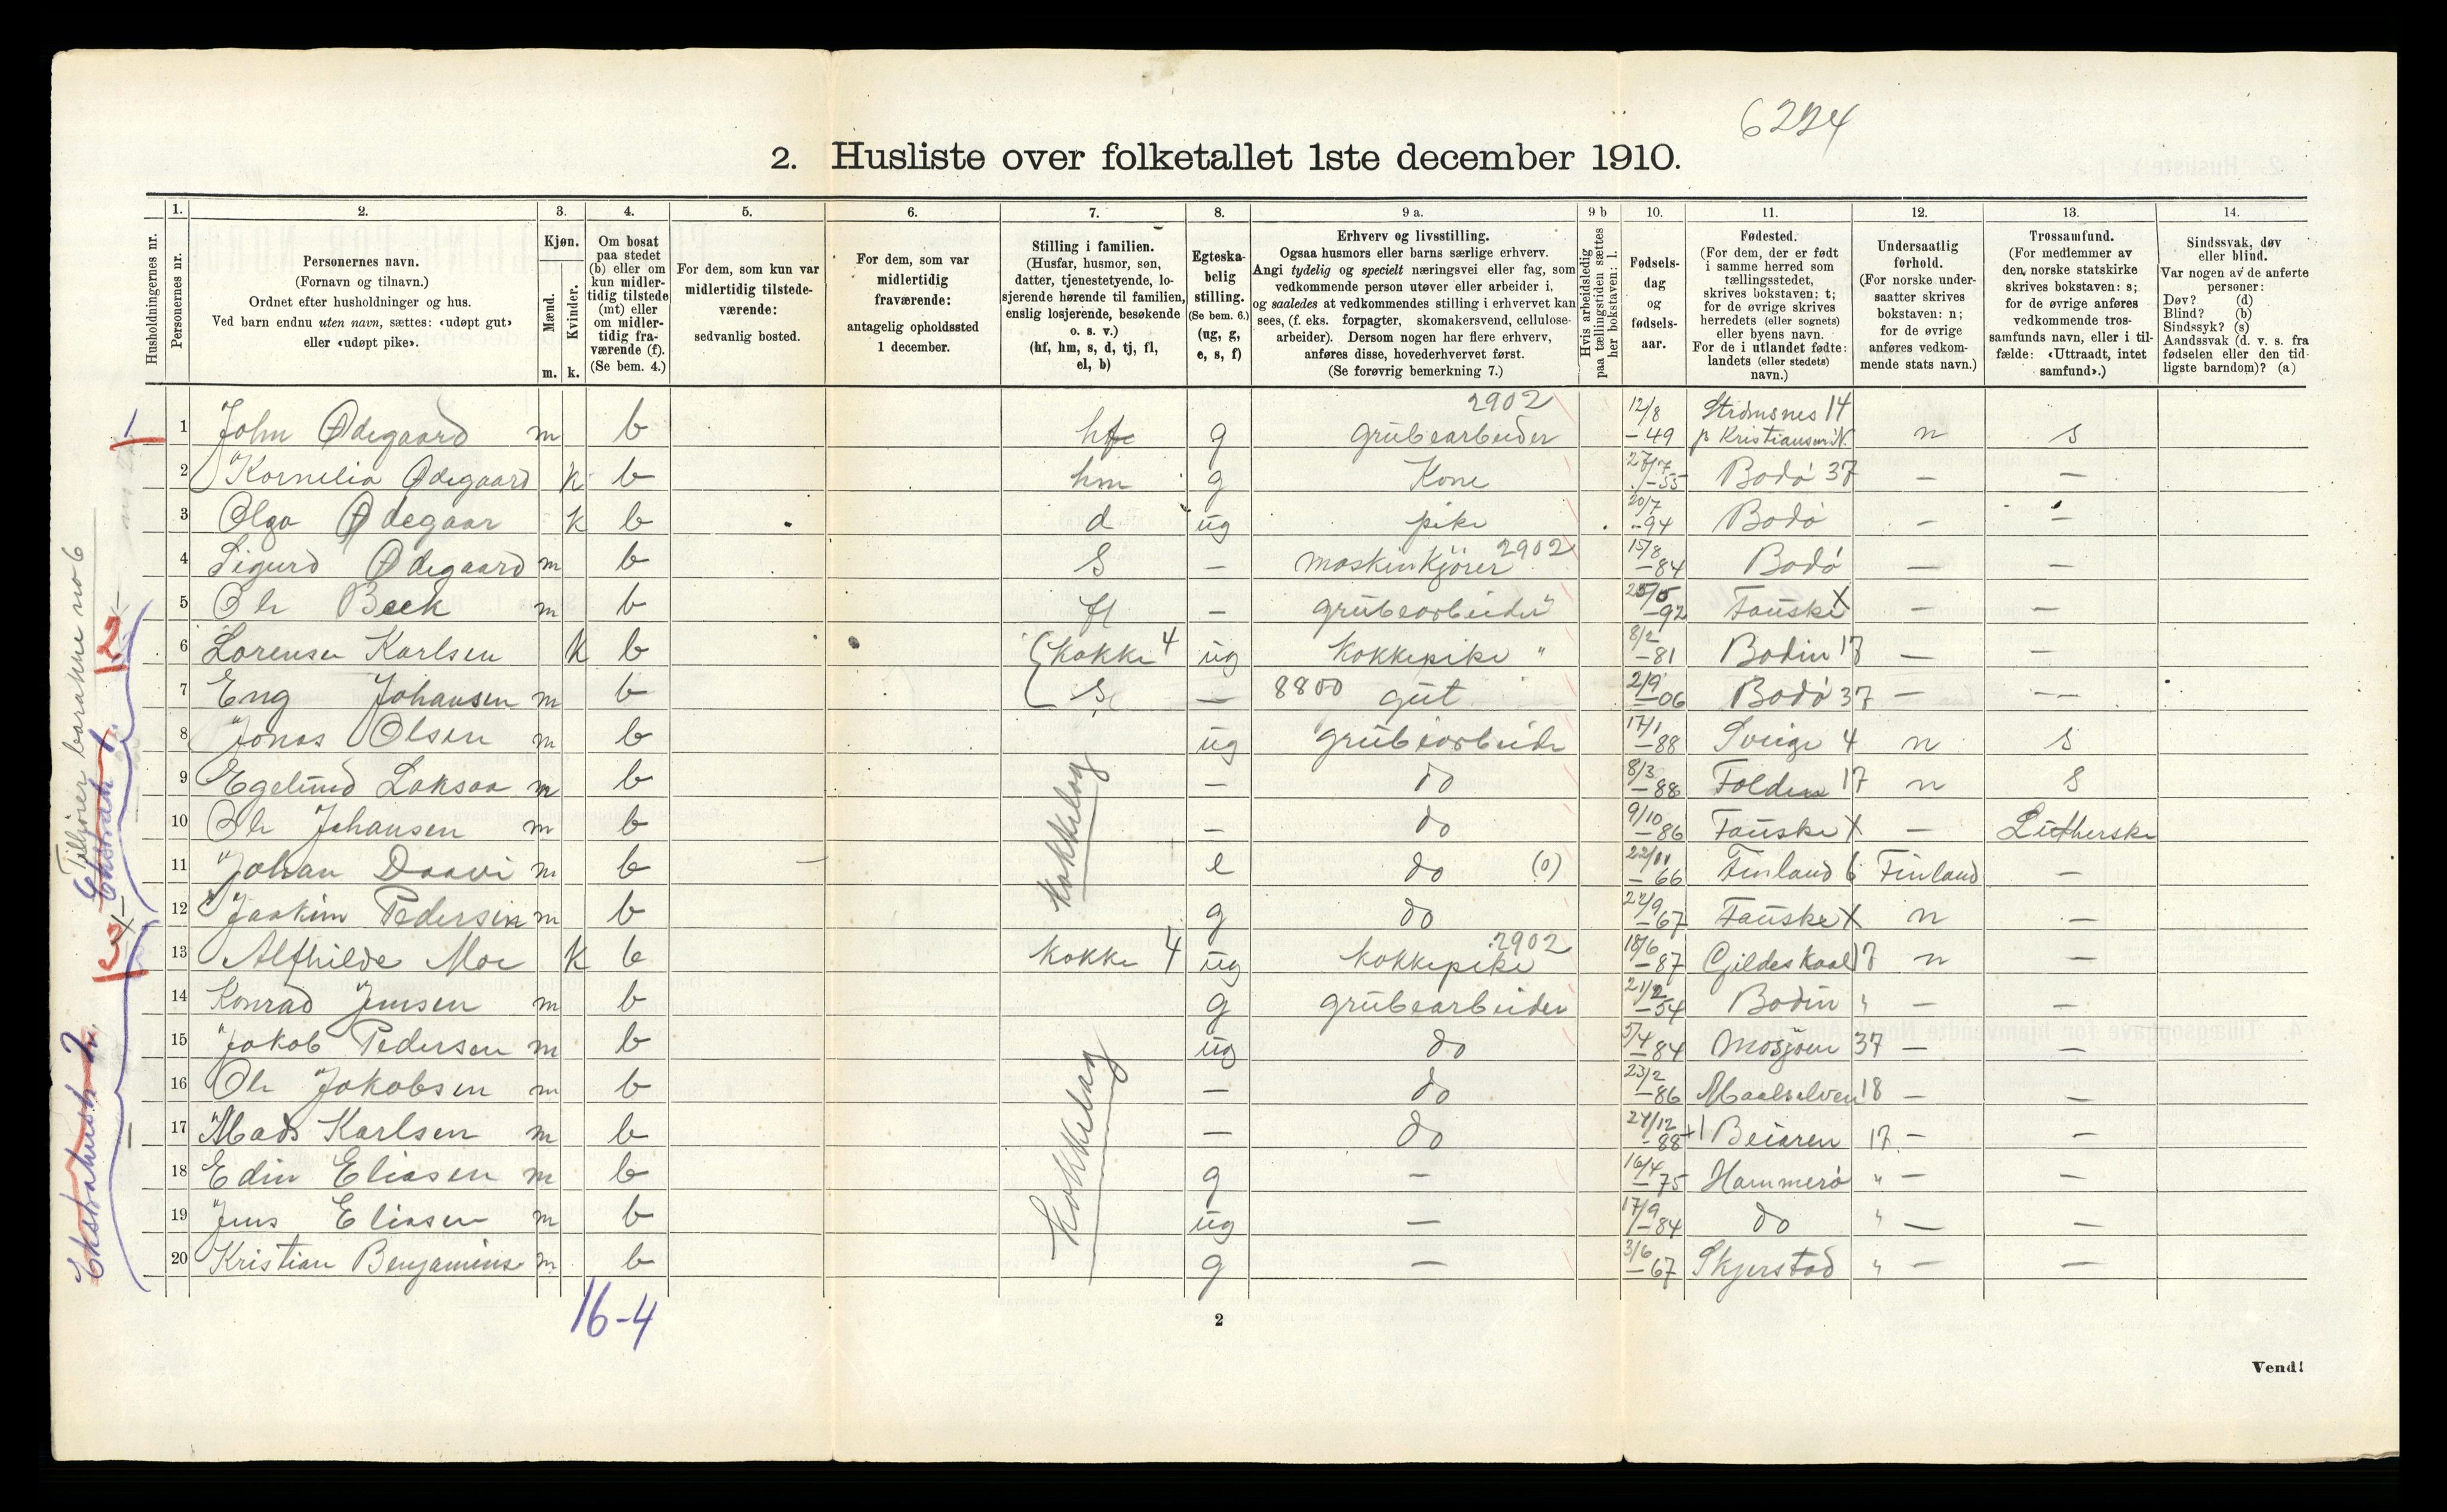 6224
2. Husliste over folketallet 1ste december 1910.
Husholdningernes nr.
1. Personernes nr.
2. Personernes navn.
(Fornavn og tilnavn.)
Ordnet efter husholdninger og hus.
Ved barn endnu uten navn, sættes: «udøpt gut»
eller «udøpt pike».
3. Kjøn.
Mænd. Kvinder.
m. k.
4. Om bosat
paa stedet
(b) eller om
kun midler-
tidig tilstede
(mt) eller
om midler-
tidig fra-
værende (f).
(Se bem. 4.)
5. For dem, som kun var
midlertidig tilstede-
værende:
sedvanlig bosted.
6. For dem, som var
midlertidig
fraværende:
antagelig opholdssted
1 december.
7. Stilling i familien.
(Husfar, husmor, søn,
datter, tjenestetyende, lo-
sjerende hørende til familien,
enslig losjerende, besøkende
o. s. v.)
(hf, hm, s, d, tj, fl,
el, b)
8. Egteska-
belig
stilling.
(Se bem. 6.)
(ug, g,
e, s, f)
9 a. Erhverv og livsstilling.
Ogsaa husmors eller barns særlige erhverv.
Angi tydelig og specielt næringsvei eller fag, som
vedkommende person utøver eller arbeider i,
og saaledes at vedkommendes stilling i erhvervet kan
sees, (f. eks. forpagter, skomakersvend, cellulose-
arbeider). Dersom nogen har flere erhverv,
anføres disse, hovederhvervet først.
(Se forøvrig bemerkning 7.)
9 b Hvis arbeidsledig
paa tællingstiden sættes
her bokstaven: l.
10. Fødsels-
dag
og
fødsels-
aar.
11. Fødested.
(For dem, der er født
i samme herred som
tællingsstedet,
skrives bokstaven: t;
for de øvrige skrives
herredets (eller sognets)
eller byens navn.
For de i utlandet fødte:
landets (eller stedets)
navn.)
12. Undersaatlig
forhold.
(For norske under-
saatter skrives
bokstaven: n;
for de øvrige
anføres vedkom-
mende stats navn.)
13. Trossamfund.
(For medlemmer av
den norske statskirke
skrives bokstaven: s;
for de øvrige anføres
vedkommende tros-
samfunds navn, eller i til-
fælde: «Uttraadt, intet
samfund».)
14. Sindssvak, døv
eller blind.
Var nogen av de anførte
personer:
Døv? (d)
Blind? (b)
Sindssyk? (s)
Aandssvak (d. v. s. fra
fødselen eller den tid-
ligste barndom)? (a)
1 John Ødegaard m b hf g 2902 grubearbeider 12/8 -49 Strømsnes 14 p Kristiansun N. n s
2 Kornelia Ødegaard k b hm g Kone 27/7 -55 Bodø 37 — —
3 Olga Ødegaar k b d ug pike 20/7 -94 Bodø — —
4 Sigurd Ødegaard m b S — maskinkjører 2902 15/8 -84 Bodø — —
5 Ole Beck m b fl — grubearbeider " 25/5 -92 Fauske X — —
6 Lorense Karlsen k b Kokke 4 ug Kokkepike " 8/2 -81 Bodin 17 — —
7 Eng Johansen m b S — 8800 gut 2/9 -06 Bodø 37 — —
8 Jonas Olsen m b ug grubearbeide 17/1 -88 Sverige 4 n s
9 Egelund Laksaa m b — do 8/3 -88 Folden 17 n S
10 Ole Johansen m b — do 9/10 -86 Fauske X — Lutherske
11 Johan Daavi m b e do (0) 22/11 -66 Finland 6 Finland —
12 Joakim Pedersen m b g do 22/9 -67 Fauske X n —
Kokkelag
13 Alfhilde Moe k b kokke 4 ug 2902 kokkepike 18/6 -87 Gildeskaal 17 n —
14 Konrad Jensen m b g grubearbeider 21/2 -54 Bodin " — —
15 Jakob Pedersen m b ug do 5/4 -84 Mosjøen 37 — —
16 Ole Jakobsen m b — do 23/2 -86 Maalselven 18 — —
17 Mads Karlsen m b — do 24/12 -88 +1 Beiaren 17 — —
18 Edin Eliasen m b g — 16/4 -75 Hammerø " — —
19 Jens Eliasen m b ug — 17/9 -84 do " — —
20 Kristian Benjamins m b g — 3/6 -67 Skjerstad " — —
Kokkelag
Tilhører barakke no 6
Ekstrahush 2
16-4
2
Vend!